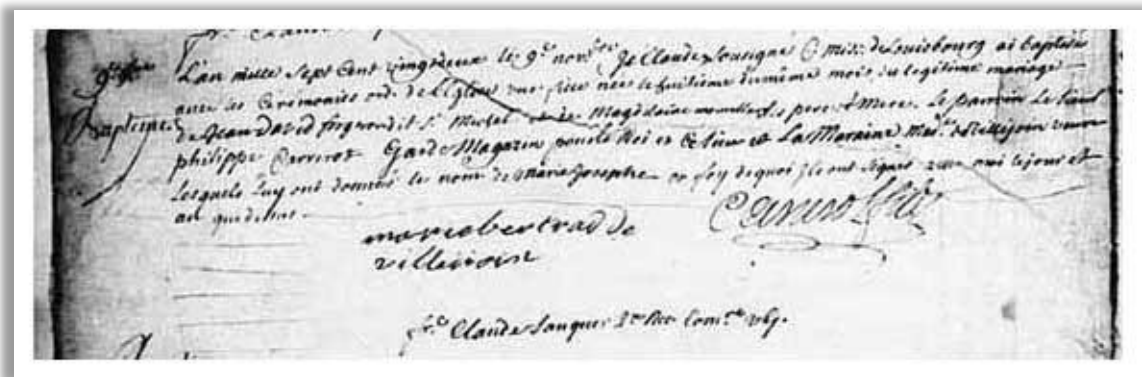 9e 9bre
Baptême
L'an mille Sept Cent vingt deux le 9e novbre Je Claude Sousigné Cure de Louisbourg ai baptisé
avec les Cérémonies ord. de L'Eglise une fille née le huitième du même mois du legitime mariage
de Jean David forgeron dit St Michel et de Magdelaine ses pere & Mere. Le parrain Le Sieur
philippe Carrerot Garde Magazin pour le Roi en Ce lieu et La Maraine Made de Villejoin veuve
lesquels Luy ont donné le nom de marie Josephe en foy de quoi Ils ont signés avec moi le jour et
an que dessus.
marie bertrad de
villejoin
Carrerot
fr. Claude Sanquer